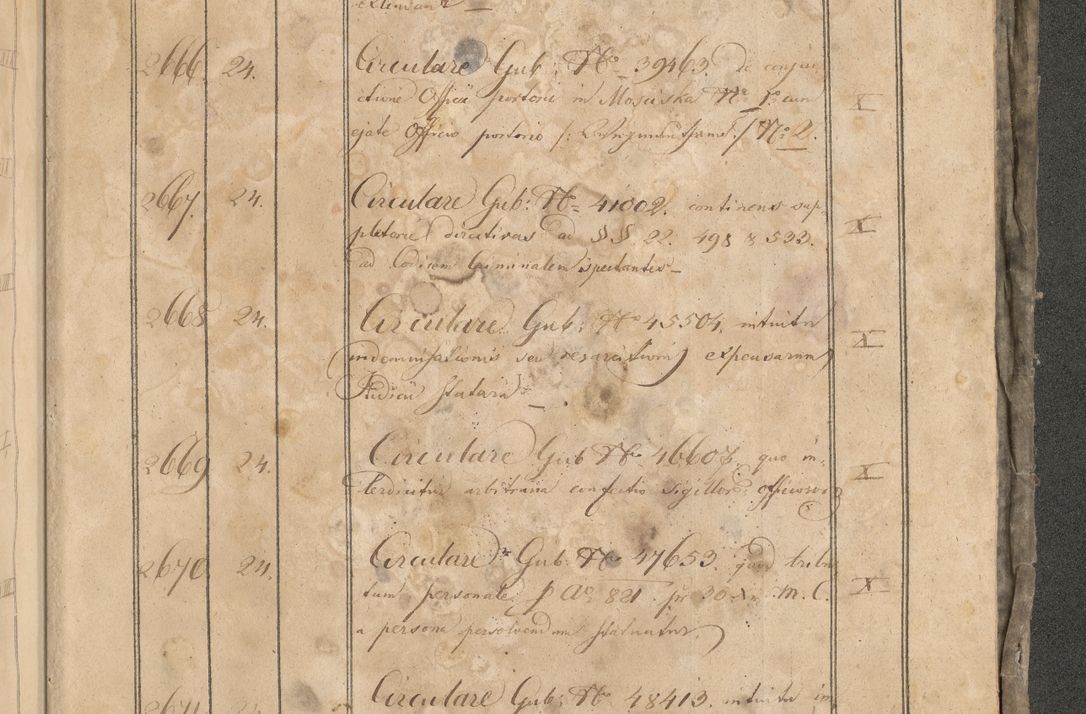 extendant —
2666. 24. Circulare Gub: No 39463. de conjun
ctione Officii portorii in Mosciska No 1o cum
ejate Officio portorio No 2.
2667. 24. Circulare Gub: No 41002. continens sup-
pletorie directivas ad §§ 22. 498 & 533.
ad Codicem Criminalem spectantes —
2668 24. Circulare Gub: No 45504. intuitu
indemnisationis seu resarcitionis expensarum
Judicii Statarii —.
2669 24. Circulare Gub No 46607. quo in-
terdicitur arbitraria confectio sigillor: officioso
2670 24. Circulare Gub. No 47653. quod tribu
tum personale p Ao 821. pr 30 Xr. M. C.
a persona persolvendum statuatur.
2671 24. Circulare Gub: No 48413. intuitu im